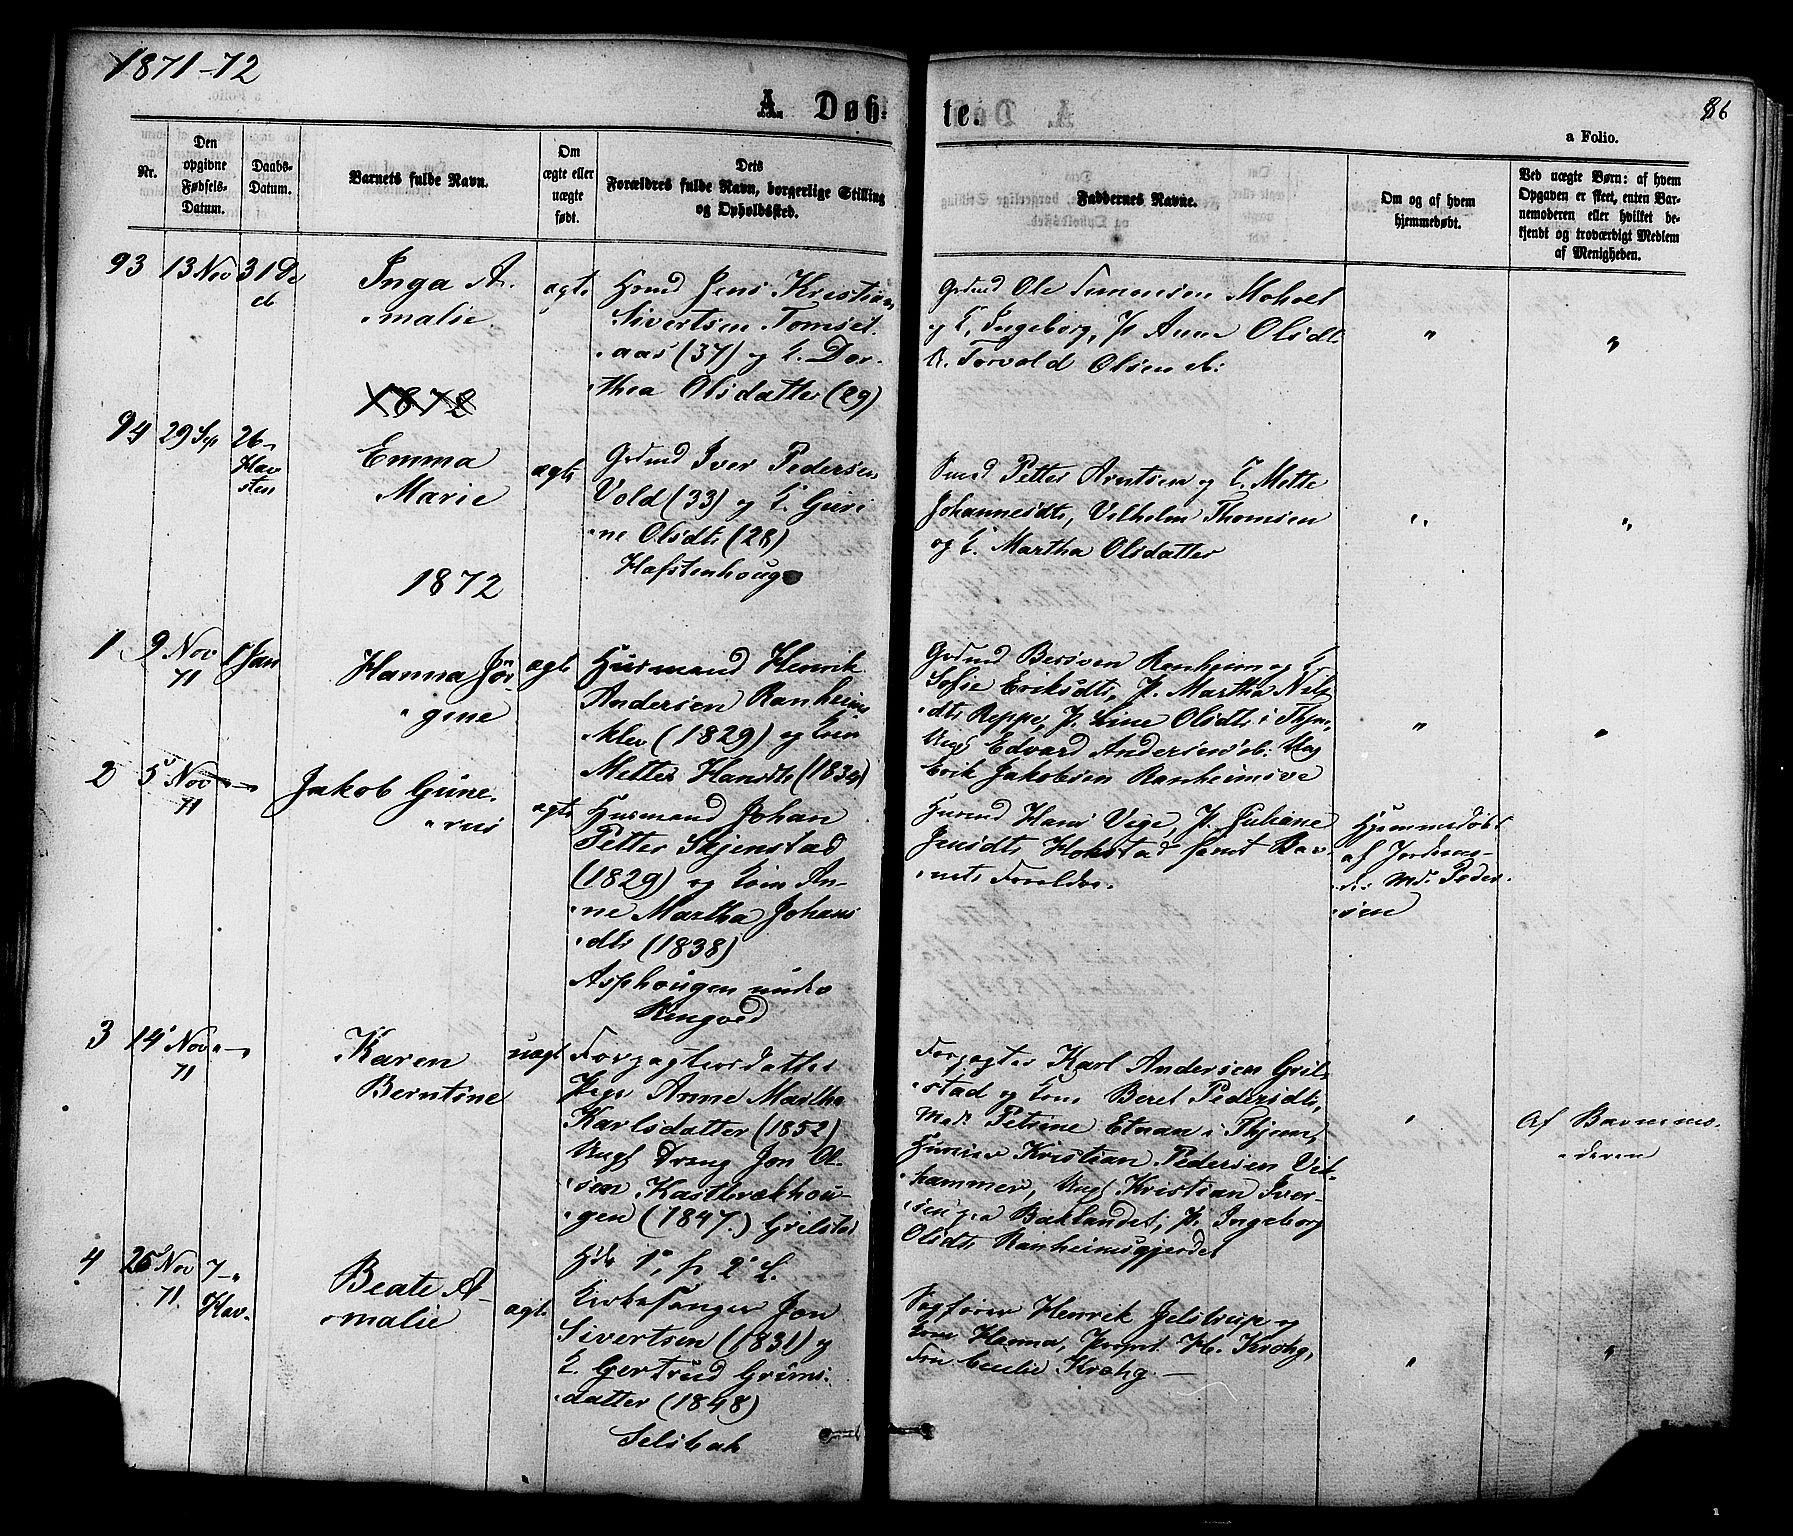 1871-72
86
A. Døbte.
a Folio.
Nr.
Den opgivne Fødsels-Datum.
Daabs-Datum.
Barnets fulde Navn.
Om ægte eller uægte født.
Dets Forældres fulde Navn, borgerlige Stilling og Opholdssted.
Faddernes Navne.
Om og af hvem hjemmedøbt.
Ved uægte Børn: af hvem Opgaven er skeet, enten Barnemoderen eller hvilket bekjendt og troværdigt Medlem af Menigheden.
93 13 Nov 31 De
cb
Inga A-
malie
ægte
Jens Kristian
Sivertsen Tomset
aas (37) og E. Dor-
thea Olsdatter (29)
Ole Tommesen Moholt
og E. Ingeborg, P. Anne Olsdt
Torvold Olsen
"
"
1872
94 29 Sep 26
Hav
sten
Emma
Marie
ægte
Iver Pedersen
Vold (33) og E. Guri-
ne Olsdtr (28)
Hafstenhoug
Petter Arntsen og E. Mette
Johannesdtr, Vilhelm Thomsen
og E. Martha Olsdatter
"
"
1872
1 9 Nov 1 Jan
71
Hanna Jör-
gine
ægte
Husmand Henrik
Andersen Ranheims
klev (1829) og Kone
Mette Hansdtr (1834)
Ranheim og E.
Sofie Eriksdtr, P. Martha Nils
dtr Reppe, P. Line Olsdtr i Thjen,
Ung Edvard Andersen
Erik Jakobsen Ranheimsve
"
"
2 5 Nov -"-
71
Jakob Gune-
rus
ægte
Husmand Johan
Petter Skjenstad
(1829) og Kone An-
ne Martha Johans
dtr (1838)
Asphougen under
Ringved
Hans Vige, P. Juliane
Jensdtr Hokstad samt Bar-
nets Forældre.
Hjemmedøbt
af Jordemo-
der Md. Peder-
sen
3 14 Nov -"-
71
Karen
Berntine
uægte
Forpagtersdatter
Pige Anne Martha
Karlsdatter (1852)
Ungk Dreng Jon Ol-
sen Kastbrækhou-
gen (1847.) Grilstad
Forpagter Karl Andersen Gril-
stad og Kone Beret Pedersdtr,
Mad. Petrine Etnan i Thjen,
Kristian Pedersen Vik-
hammer, Ungk Kristian Iver-
sen paa Baklandet, P. Ingeborg
Olsdtr Ranheimsgjerdet
"
Af Barnemo-
deren
4 25 Nov 7
71. Hav.
Beate A-
malie
ægte
1, p 2 L.
Kirkesanger Jon
Sivertsen (1831) og
E. Gertrud Grims-
datter (1848)
Selsbak
Sagfører Henrik Jelstrup og
Kone Hanna, Propr. H. Krohg,
Frk Cecilie Krohg -
"
"